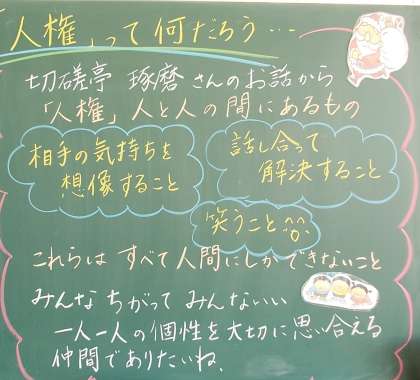 「人権」って何だろう…
切磋亭 琢磨さんのお話から
「人権」人と人の間にあるもの
相手の気持ちを
想像すること
話し合って
解決すること
笑うこと
これらは すべて人間にしかできないこと
みんな ちがって みんないい
一人一人の個性を大切に思い合える
仲間でありたいね、